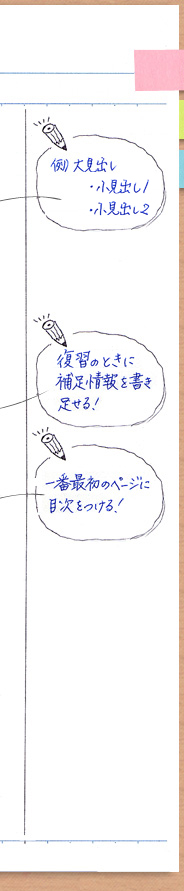 例) 大見出し
・小見出し1
・小見出し2
復習のときに
補足情報を書き
足せる!
一番最初のページに
目次をつける!